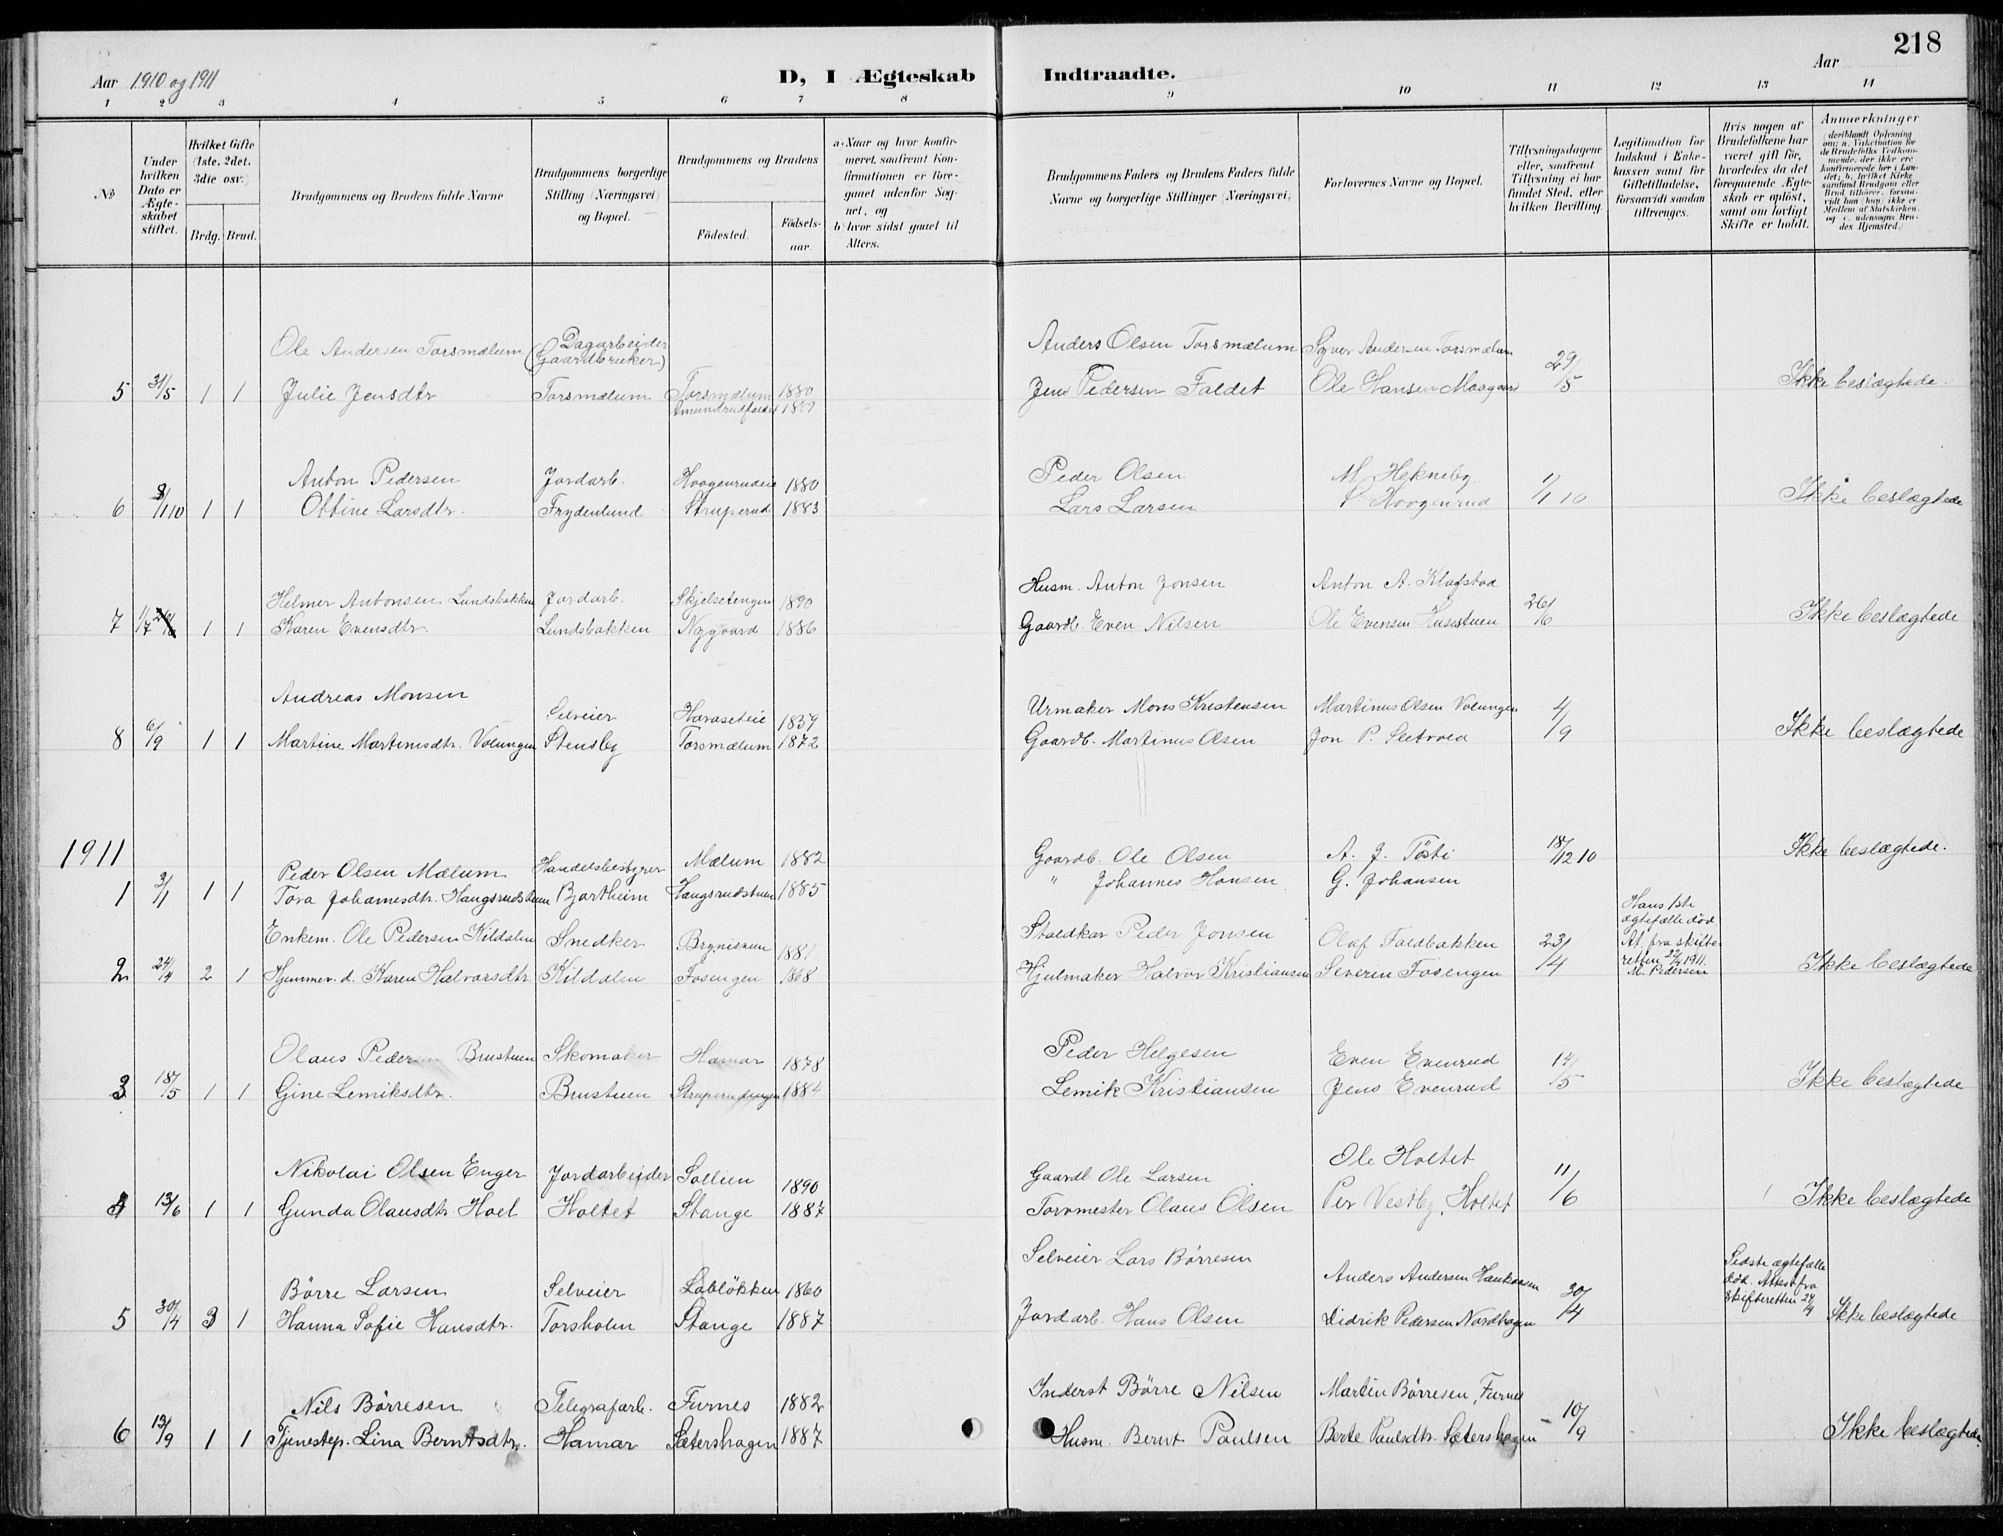 218
Aar 1910 og 1911
D, I Ægteskab Indtraadte.
Aar
1 2 3 4 5 6 7 8 9 10 11 12 13 14
No
Under hvilken Dato er Ægteskabet stiftet.
Hvilket Gifte (1ste, 2det, 3die osv.)
Brdg. Brud.
Brudgommens og Brudens fulde Navne
Brudgommens borgerlige Stilling (Næringsvei) og Bopæl.
Brudgommens og Brudens
Fødested. Fødselsaar.
a. Naar og hvor konfirmeret, saafremt Konfirmationen er foregaaet udenfor Sognet, og
b. hvor sidst gaaet til Alters.
Brudgommens Faders og Brudens Faders fulde Navne og borgerlige Stillinger (Næringsvei)
Forlovernes Navne og Bopæl.
Tillysningsdagene eller, saafremt Tillysning ei har fundet Sted, efter hvilken Bevilling.
Legitimation for Indskud i Enkekassen samt for Giftetilladelse, forsaavidt saadan tiltrænges.
Hvis nogen af Brudefolkene har været gift før, hvorledes da det foregaaende Ægteskab er opløst, samt om lovligt Skifte er holdt.
Anmerkninger
Ole Andersen Torsmælum Dagarbeider (Gaardbruker) Anders Olsen Torsmælum Syver Andersen Torsmælum
5 31/5 1 1 Julie Jensdtr Torsmælum Torsmælum 1880 Jens Pedersen Faldet Ole Hansen 29/5 Ikke beslægtede.
Amundrudfaldet
Anton Pedersen Jordarb. 1880 Peder Olsen M. Hekneby
6 1 1 Ottine Larsdtr. Frydenlund Struperud 1883 Lars Larsen Hoogenrud 1/1 10 Ikke beslægtede
Helmer Antonsen Lundsbakken Jordarb. Skjelsetengen 1890 Husm. Anton Jonsen Anton A. Klafstad
7 1/7 1 1 Karen Evensdtr. Lundsbakken Nygaard 1886 Gaardb. Even Nilsen Ole Evensen Husestuen 26/6 Ikke beslægtede
Andreas Monsen Selveier 1839 Urmaker Mons Kristensen Martinus Olsen Volungen
8 6/9 1 1 Martine Martinusdtr. Volungen Stensby Torsmælum 1872 Gaardb. Martinus Olsen Jon P. 4/9 Ikke beslægtede
1911
Peder Olsen Mælum Handelsbestyrer Mælum 1882 Gaardb. Ole Olsen A. J. Tøsti 18/12 10 Ikke beslægtede.
1 3/1 1 1 Tora Johannesdtr. Haugsrudstuen Bjartheim Haugsrudstuen 1885 " Johannes Hansen G. Johansen
Enkem. Ole Pedersen Kildalen Snedker 1881 Staldkar Peder Jonsen Olaf Faldbakken Hans 1ste ægtefælle død
2 24/4 2 1 Hjemmev. d. Karen Halvorsdtr. Kildalen Fosengen 1868 Hjulmaker Halvor Kristiansen Severin Fosengen 23/4 At. fra skifteretten 22/4 1911. M. Pedersen Ikke beslægtede
Olaus Pedersen Brustuen Skomaker Hamar 1878 Peder Helgesen Even Evenrud
3 18/5 1 1 Gine Lemiksdtr. Brustuen Struperudengen 1884 Lemik Kristiansen Jens Evenrud 14/5 Ikke beslægtede
Nikolai Olsen Enger Jordarbeider Sollien 1890 Gaardb Ole Larsen Ole Holtet
4 13/6 1 1 Gunda Olausdtr. Hoel Holtet Stange 1887 Torvmester Olaus Olsen Per Vestby, Holtet 11/6 Ikke beslægtede
Børre Larsen Selveier Labløkken 1860 Selveier Lars Børresen Anders Andersen Haukaasen Sidste ægtefælle død. Attest fra skifteretten 24/4
5 30/4 3 1 Hanna Sofie Hansdtr. Torsholm Stange 1887 Jordarb. Hans Olsen Didrik Pedersen Nordhagen 30/4 Ikke beslægtede
Nils Børresen Telegrafarb. Furnes 1882 Inderst Børre Nilsen Martin Børresen, Furnes
6 13/9 1 1 Tjenestep. Lina Berntsdtr. Hamar Sætershagen 1887 Husm. Bernt Paulsen Berte Paulsdtr. Sætershagen 10/9 Ikke beslægtede.